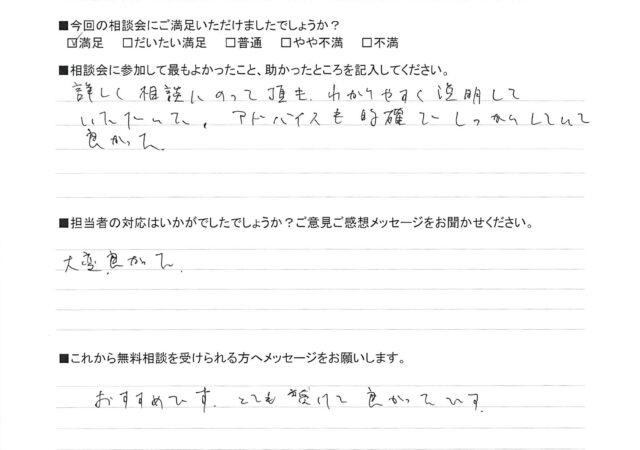 ■今回の相談会にご満足いただけましたでしょうか？
☑満足　□だいたい満足　□普通　□やや不満　□不満
■相談会に参加して最もよかったこと、助かったところを記入してください。
詳しく相談にのって頂き、わかりやすく説明して
いただいて、アドバイスも的確で しっかりしていて
良かった。
■担当者の対応はいかがでしたでしょうか？ご意見ご感想メッセージをお聞かせください。
大変良かった。
■これから無料相談を受けられる方へメッセージをお願いします。
おすすめです。とても 受けて 良かったです。